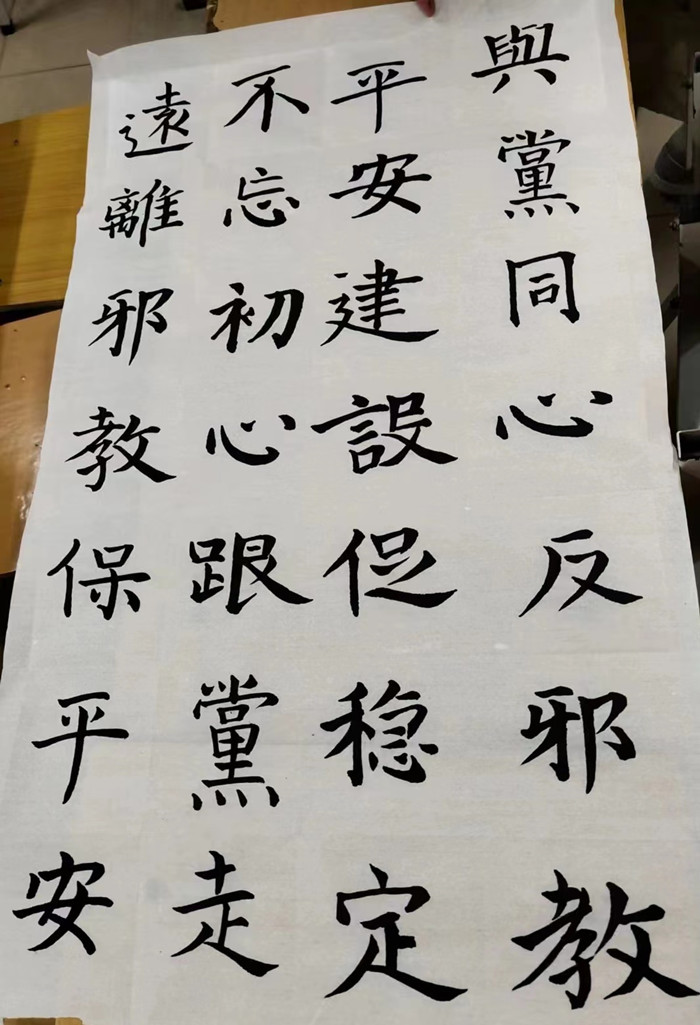 與黨同心反邪教
平安建設促稳定
不忘初心跟黨走
遠離邪教保平安